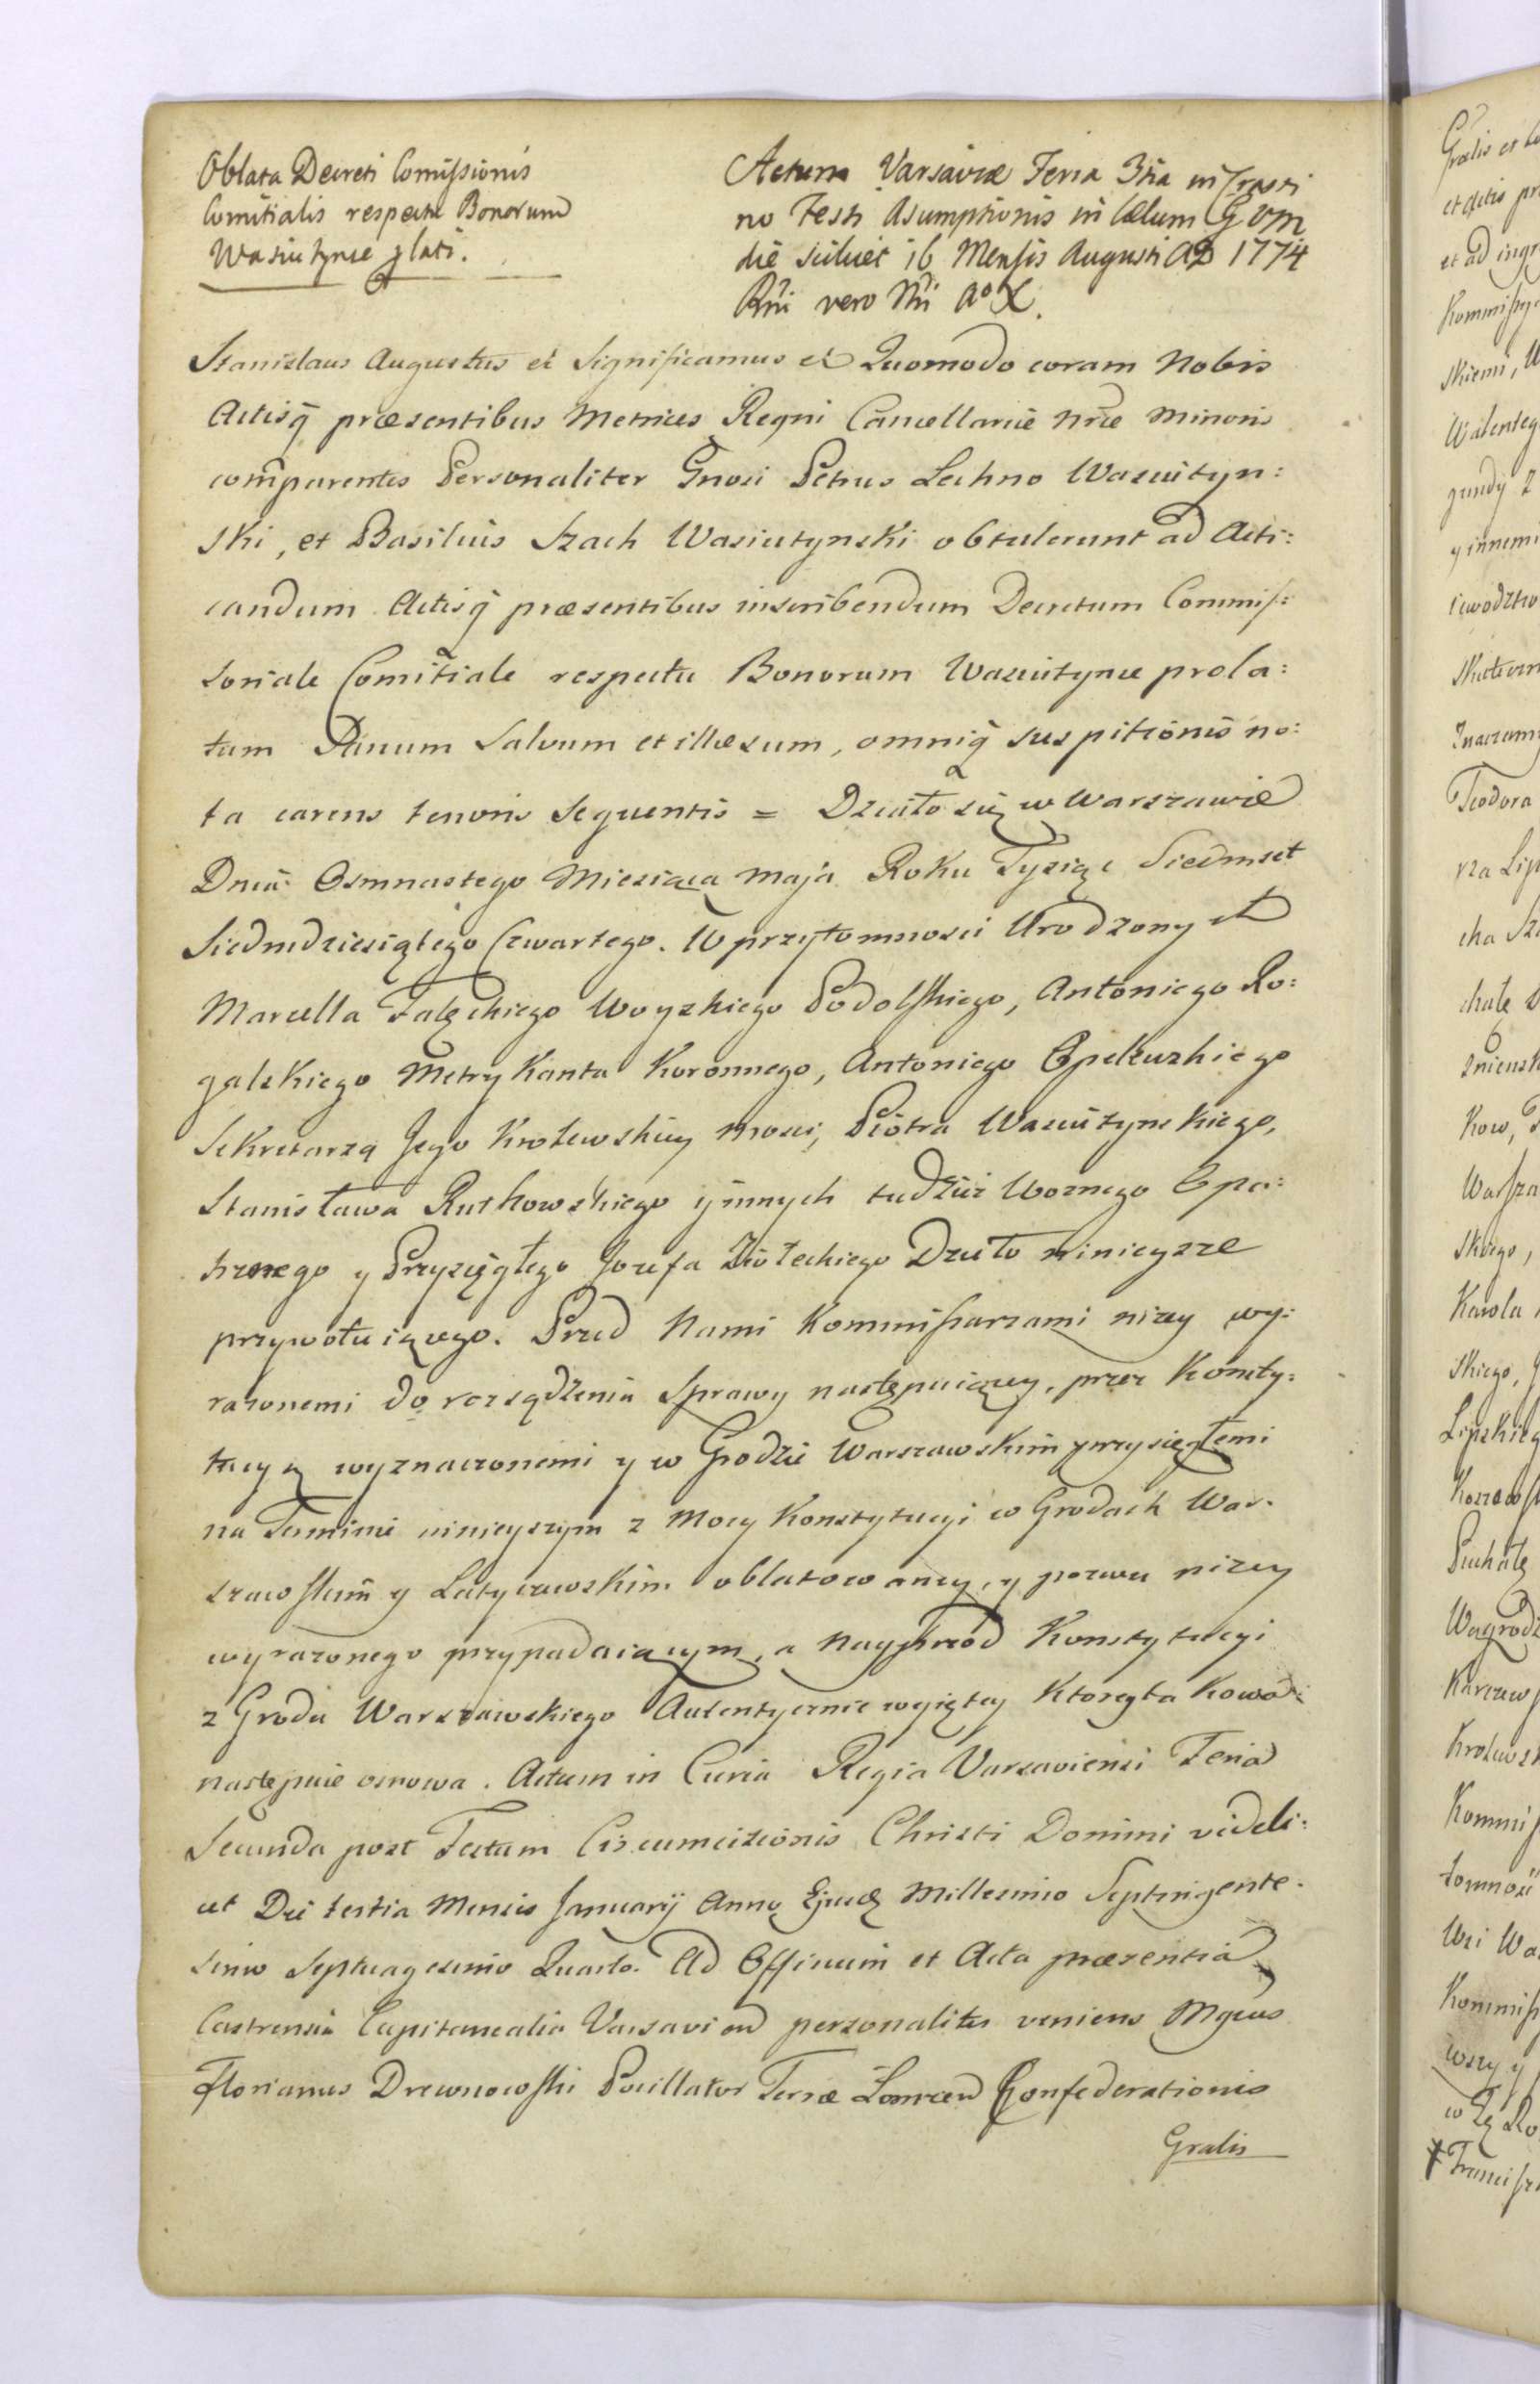 Oblata Decreti Comissionis
Comitialis respectu Bonorum
Wasiutynce plati.
Actum Varsaviæ Feria 3tia in Crasti
no Festi Asumptionis in Cælum G V M
die scilicet 16 Mensis Augusti AD 1774
Rni vero Nri A° X.
Stanislaus Augustus et Significamus et Quomodo coram Nobis
Actisq præsentibus Metrices Regni Cancellariæ Nræ Minoris
comparentes Personaliter Gnosi Petrus Lechno Wasiutyn:
ski, et Basilius Szach Wasiutynski obtulerunt ad Acti:
candum Actisq præsentibus inscribendum Decretum Commis:
soriale Comitiale respectu Bonorum Wasiutynce prola:
tum Sanum Salvum et illæsum, omniq suspitionis no:
ta carens tenoris sequentis = Działo się w Warszawie
Dnia Osmnastego Miesiąca Maja Roku Tysiąc Siedmset
Siedmdziesiątego Czwartego. W przytomnosci Urodzonych
Marcella Załęckiego Woyskiego Podolskiego, Antoniego Ro:
galskiego Metrykanta Koronnego, Antoniego Opeltuskiego
Sekretarza Jego Krolewskiey Mosci, Piotra Wasiutynskiego,
Stanisława Rutkowskiego y innych tudziez Woznego Opa:
trznego y Przysięgłego Jozefa Ziołeckiego Dzieło ninieysze
przywołuiącego. Przed Nami Kommissarzami nizey wy:
razonemi do rozsądzenia Sprawy następuiącey, przez Konsty:
tucyą wyznaczonemi y w Grodzie Warszawskim przysięgłemi
na Terminie ninieyszym z Mocy Konstytucyi w Grodach War:
szawskim y Latyczewskim oblatowaney, y pozwu nizey
wyrazonego przypadaiącym, a nayprzod Konstytucyi
z Grodu Warszawskiego Autentycznie wyiętey Ktorey takowa
następuie osnowa. Actum in Curia Regia Varsaviensi Feria
Secunda post Festum Circumcisionis Christi Domini videli:
cet Die tertia Mensis Januarij Anno Ejusd Millesimo Septingente:
simo Septuagesimo Quarto. Ad Officium et Acta præsentia
Castrensia Capitanealia Varsavien personaliter veniens Mgcus
Florianus Drewnowski Pocillator Terræ Lomzen Confederationis
Gralis